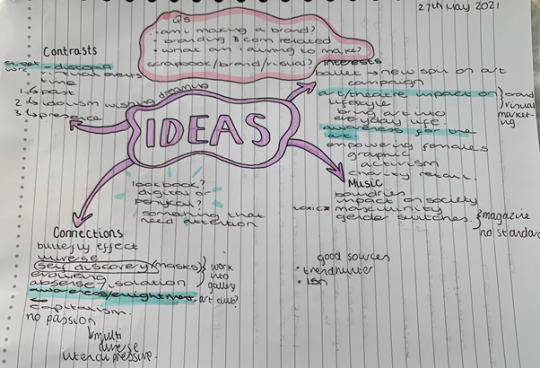 27th May 2021
Qs
am i making a brand?
branding & com related
what am i aiming to make?
scrapbook/brand/visual?
Contrasts
time
1. past
2. idolism wishing dreaming
3.
IDEAS
Interests
ballet → new spin on art
campaign
art/theatre impact on
lifestyle
bring art into
everyday life.
awareness for the
art
} brand
visual
market-
ing.
empowering females
graphic
activism
charity retail.
Music
boundries
impact on society
toxic masculinity
gender switches.
} magazine
no standard
lookbook?
digital or
physical?
something that
need attention
Connections
butterfly effect
diverse
(self discovery) (masks)
evolving
absense/isolation
} work
into
gallery
art club?
capitalism
no passion
multi
diverse
good sources
• trendhunter
• ISN